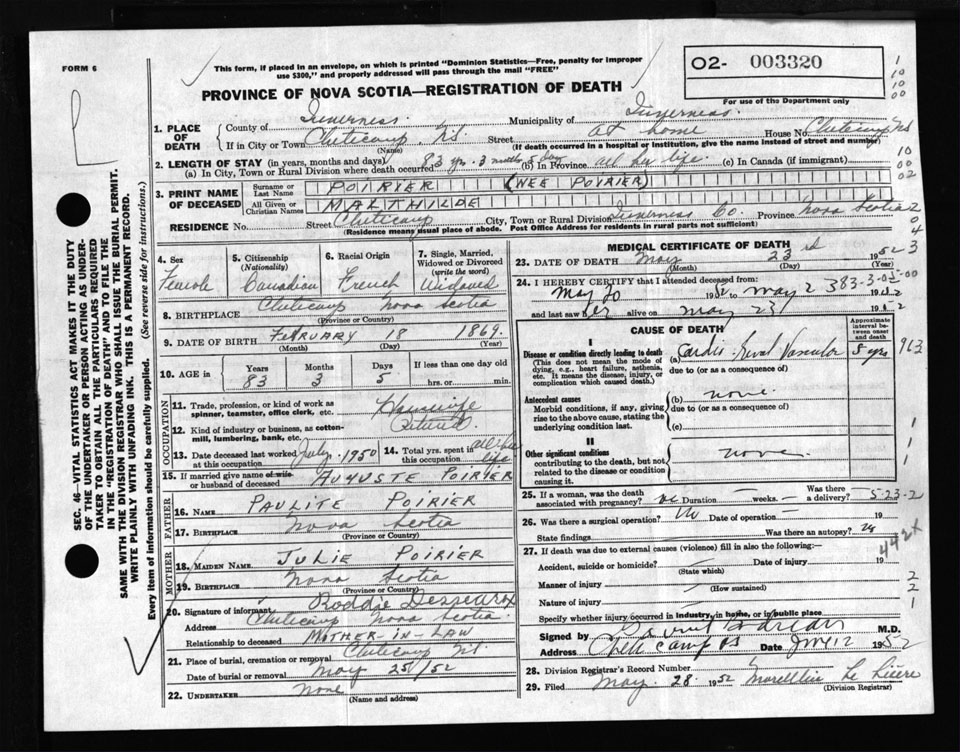 FORM 6
This form, if placed in an envelope, on which is printed "Dominion Statistics—Free, penalty for improper
use $300," and properly addressed will pass through the mail "FREE"
O2- 003320
For use of the Department only
PROVINCE OF NOVA SCOTIA—REGISTRATION OF DEATH
1. PLACE OF DEATH
County of Inverness Municipality of Inverness
If in City or Town Cheticamp N.S. Street at home House No. Cheticamp NS
(Name) (If death occurred in a hospital or institution, give the name instead of street and number)
2. LENGTH OF STAY (in years, months and days)
(a) In City, Town or Rural Division where death occurred 83 yrs. 3 months 5 days (b) In Province all her life. (c) In Canada (if immigrant)
3. PRINT NAME OF DECEASED
Surname or Last Name POIRIER (NEE POIRIER)
All Given or Christian Names MALTHILDE
RESIDENCE No. Street Cheticamp City, Town or Rural Division Inverness Co. Province Nova Scotia
(Residence means usual place of abode. Post Office Address for residents in rural parts not sufficient)
4. Sex Female
5. Citizenship (Nationality) Canadian
6. Racial Origin French
7. Single, Married, Widowed or Divorced (write the word) Widowed
8. BIRTHPLACE Cheticamp Nova Scotia
(Province or Country)
9. DATE OF BIRTH February 18 1869
(Month) (Day) (Year)
10. AGE in Years 83 Months 3 Days 5 If less than one day old hrs. or min.
OCCUPATION
11. Trade, profession, or kind of work as spinner, teamster, office clerk, etc. Housewife
12. Kind of industry or business, as cotton-mill, lumbering, bank, etc. Retired
13. Date deceased last worked at this occupation July 1950
14. Total yrs. spent in this occupation all her life
15. If married give name of wife or husband of deceased AUGUSTE POIRIER
FATHER
16. NAME PAULITE POIRIER
17. BIRTHPLACE Nova Scotia
(Province or Country)
MOTHER
18. MAIDEN NAME JULIE POIRIER
19. BIRTHPLACE Nova Scotia
(Province or Country)
20. Signature of informant Roddie
Address Cheticamp Nova Scotia
Relationship to deceased MOTHER-IN-LAW
21. Place of burial, cremation or removal Cheticamp N.S.
Date of burial or removal May 25/52
22. UNDERTAKER None
(Name and address)
MEDICAL CERTIFICATE OF DEATH
23. DATE OF DEATH May 23rd 1952
(Month) (Day) (Year)
24. I HEREBY CERTIFY that I attended deceased from:
May 20 1952 to May 2 383-3-05-00 1952
and last saw her alive on May 23 1952
CAUSE OF DEATH
Approximate interval between onset and death
I
Disease or condition directly leading to death (a) Cardio-Renal Vascular 8 yrs
(This does not mean the mode of dying, e.g., heart failure, asthenia, etc. It means the disease, injury, or complication which caused death.)
due to (or as a consequence of)
Antecedent causes
Morbid conditions, if any, giving rise to the above cause, stating the underlying condition last.
(b) none
due to (or as a consequence of)
(c)
II
Other significant conditions
contributing to the death, but not related to the disease or condition causing it.
none
25. If a woman, was the death associated with pregnancy? no Duration — weeks. — Was there a delivery? 5-23-2
26. Was there a surgical operation? No Date of operation — 19
State findings Was there an autopsy? no
27. If death was due to external causes (violence) fill in also the following:—
Accident, suicide or homicide? Date of injury 19
(State which)
Manner of injury
(How sustained)
Nature of injury
Specify whether injury occurred in industry, in home, or in public place
Signed by M.D.
Address Date 1952
28. Division Registrar's Record Number
29. Filed May 28 1952
(Division Registrar)
SEC. 46—VITAL STATISTICS ACT MAKES IT THE DUTY
OF THE UNDERTAKER OR PERSON ACTING AS UNDER-
TAKER TO OBTAIN ALL THE PARTICULARS REQUIRED
IN THE "REGISTRATION OF DEATH" AND TO FILE THE
SAME WITH THE DIVISION REGISTRAR WHO SHALL ISSUE THE BURIAL PERMIT.
WRITE PLAINLY WITH UNFADING INK. THIS IS A PERMANENT RECORD.
Every item of information should be carefully supplied. (See reverse side for instructions.)